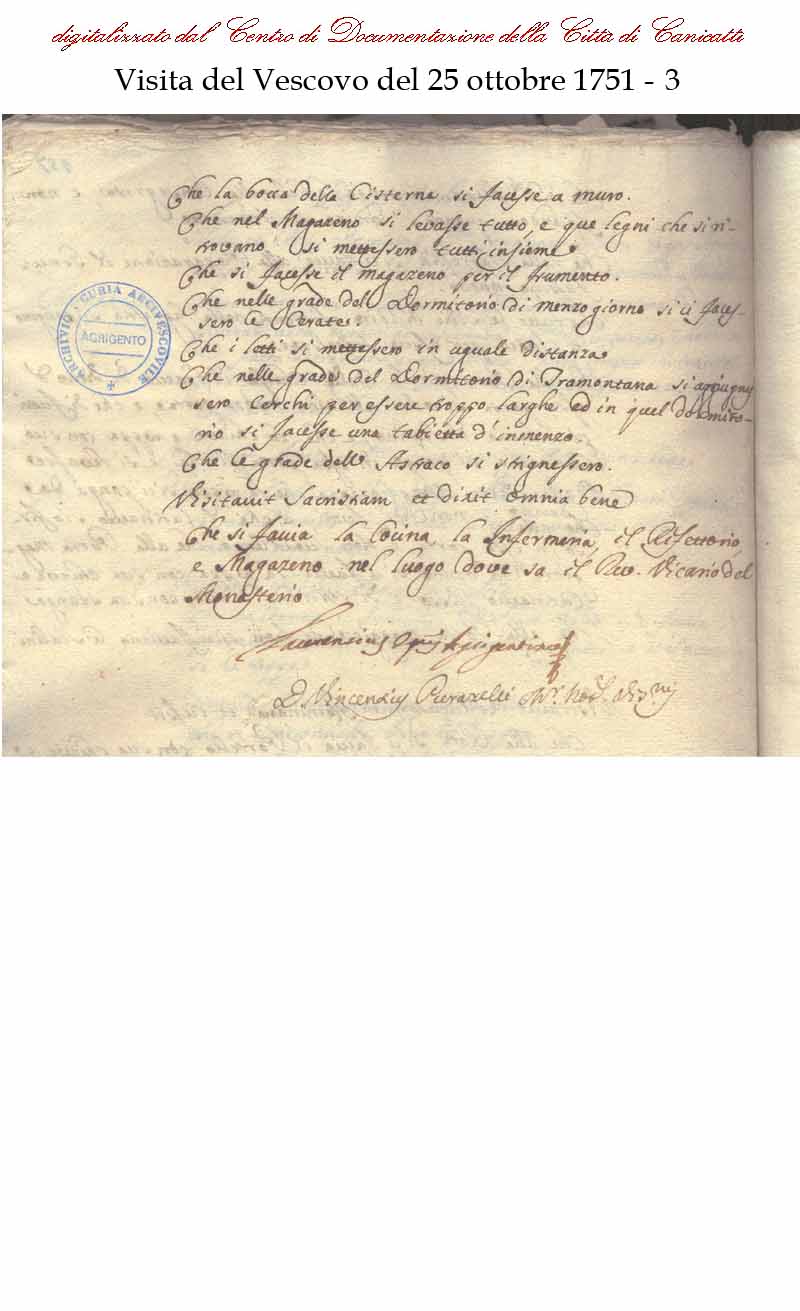 digitalizzato dal Centro di Documentazione della Città di Canicattì
Visita del Vescovo del 25 ottobre 1751 - 3
Che la bocca della Cisterna si facesse a muro.
Che nel Magazeno si levasse tutto, e que legni che si ri-
trovano si mettessero tutti insieme
Che si facesse il magazeno per il frumento.
Che nelle grade del Dormitorio di menzo giorno si ci faces-
sero le Cerate.
Che i letti si mettessero in uguale distanza
Che nelle grade del Dormitorio di Tramontana si
sero Cerchi per essere troppo larghe ed in quel dormito-
rio si facesse una d'inmenzo.
Che le grade dell' Astraco si strignessero.
Visitavit Sacristiam et dixit omnia bene
Che si faccia la Cocina, la Infermeria, il Refettorio,
e Magazeno nel luogo dove sa il Rev. Vicario del
Monasterio
Laurentius Agrigentinus
D. Vincentius
ARCHIVIO · CURIA ARCIVESCOVILE
AGRIGENTO